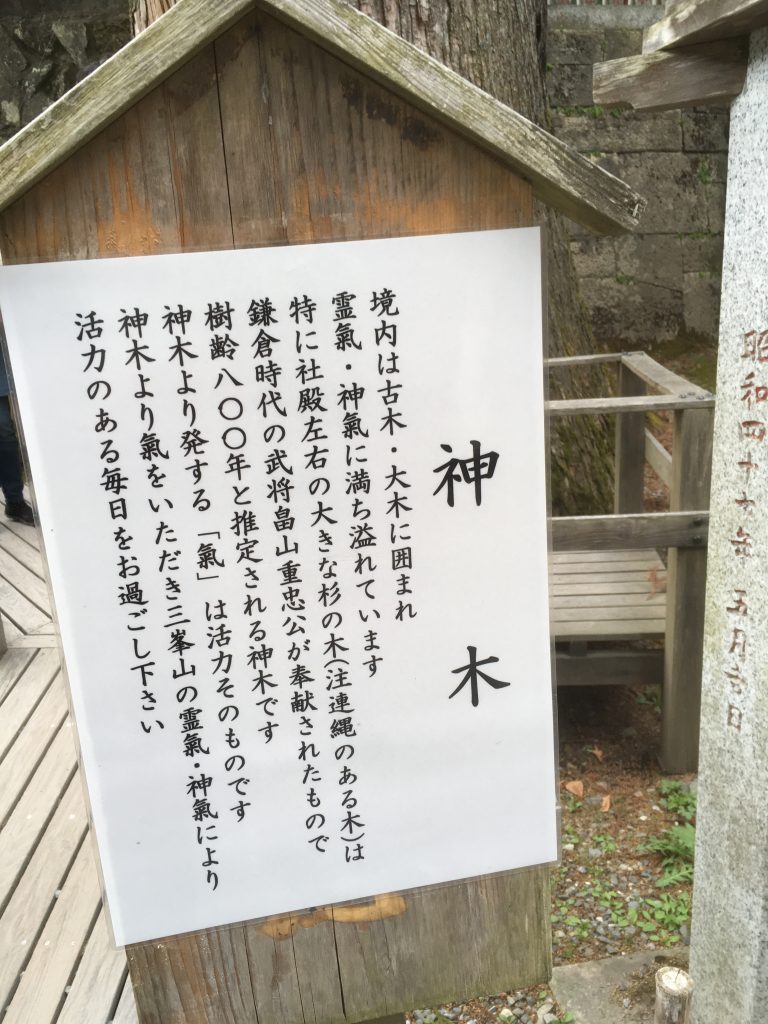 昭和四十六年五月六日
神木
境内は古木・大木に囲まれ
霊氣・神氣に満ち溢れています
特に社殿左右の大きな杉の木(注連縄のある木)は
鎌倉時代の武将畠山重忠公が奉献されたもので
樹齢八〇〇年と推定される神木です
神木より発する「氣」は活力そのものです
神木より氣をいただき三峯山の霊氣・神氣により
活力のある毎日をお過ごし下さい